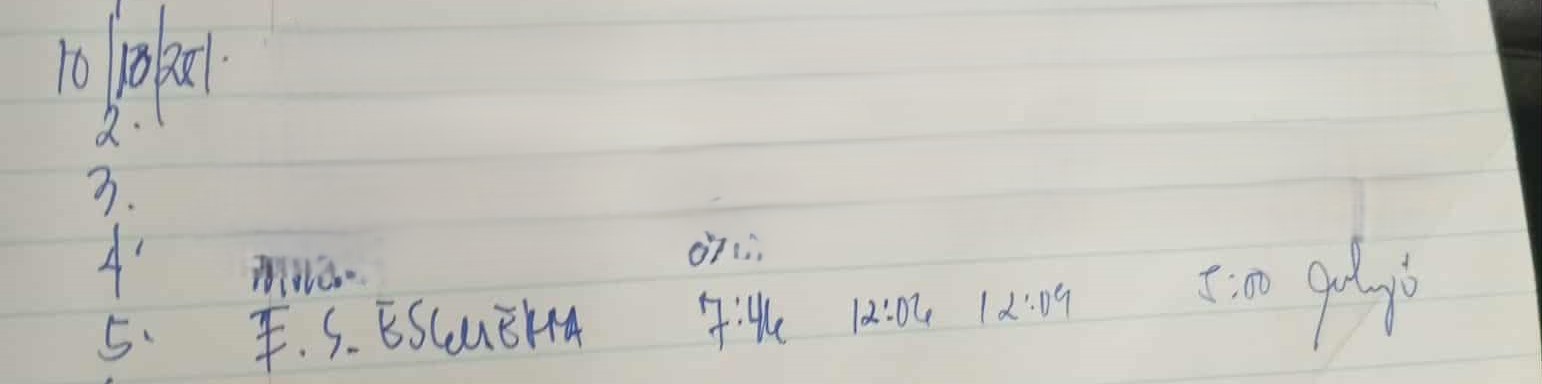 10/10/25
2.
3.
4.
5. F. S. ESGUERRA 7:46 12:06 12:09 5:00